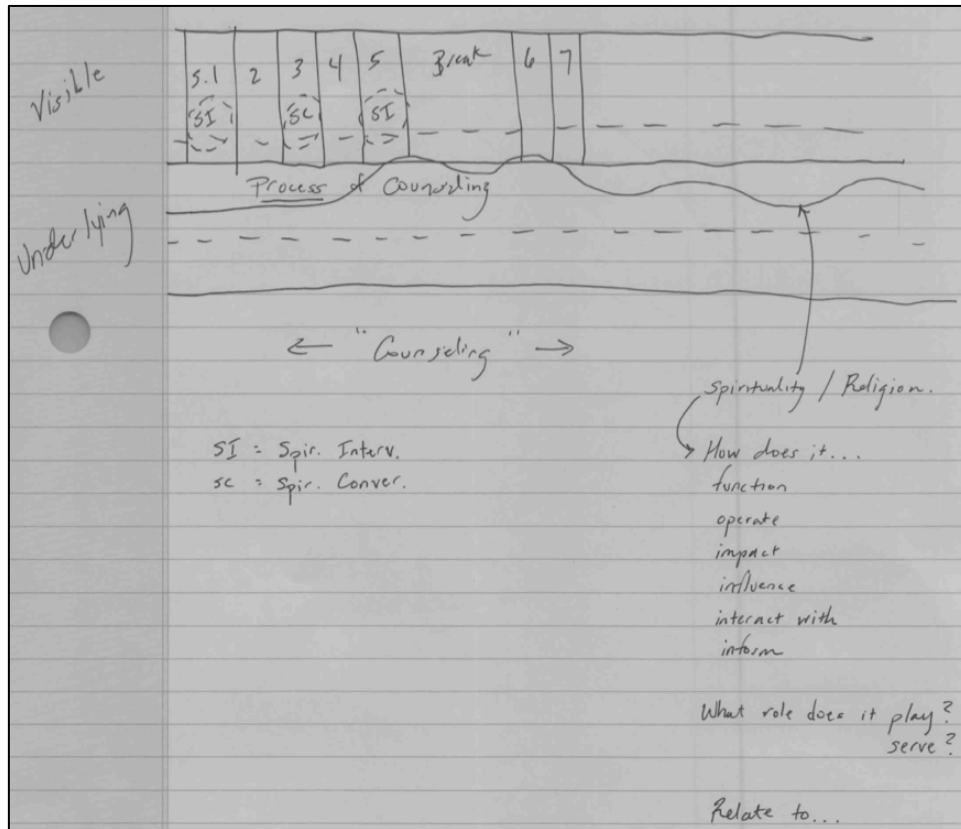 Visible
S.1 2 3 4 5 Break 6 7
SI SC SI
Process of Counseling
Underlying
← "Counseling" →
Spirituality / Religion.
SI = Spir. Interv.
SC = Spir. Conver.
How does it...
function
operate
impact
influence
interact with
inform
What role does it play?
serve?
Relate to...